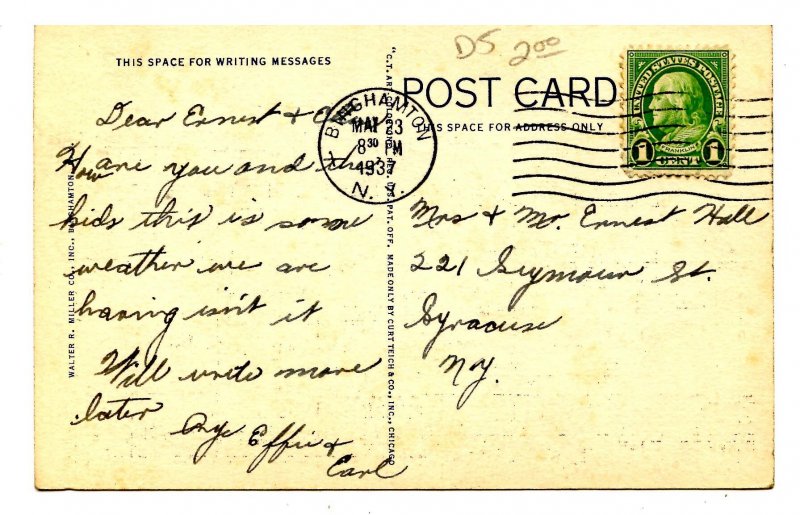 DS 2.00
THIS SPACE FOR WRITING MESSAGES
Dear Ernest &
How are you and the
kids this is some
weather we are
having isn't it
Will write more
later
Effie &
Earl
WALTER R. MILLER CO., INC., BINGHAMTON
MADE ONLY BY CURT TEICH & CO., INC., CHICAGO
POST CARD
THIS SPACE FOR ADDRESS ONLY
BINGHAMTON
MAY 23
8 30 PM
1937
N. Y.
UNITED STATES POSTAGE
FRANKLIN
1 CENT 1
Mrs & Mr. Ernest Hall
221 Seymour St.
Syracuse
N.y.